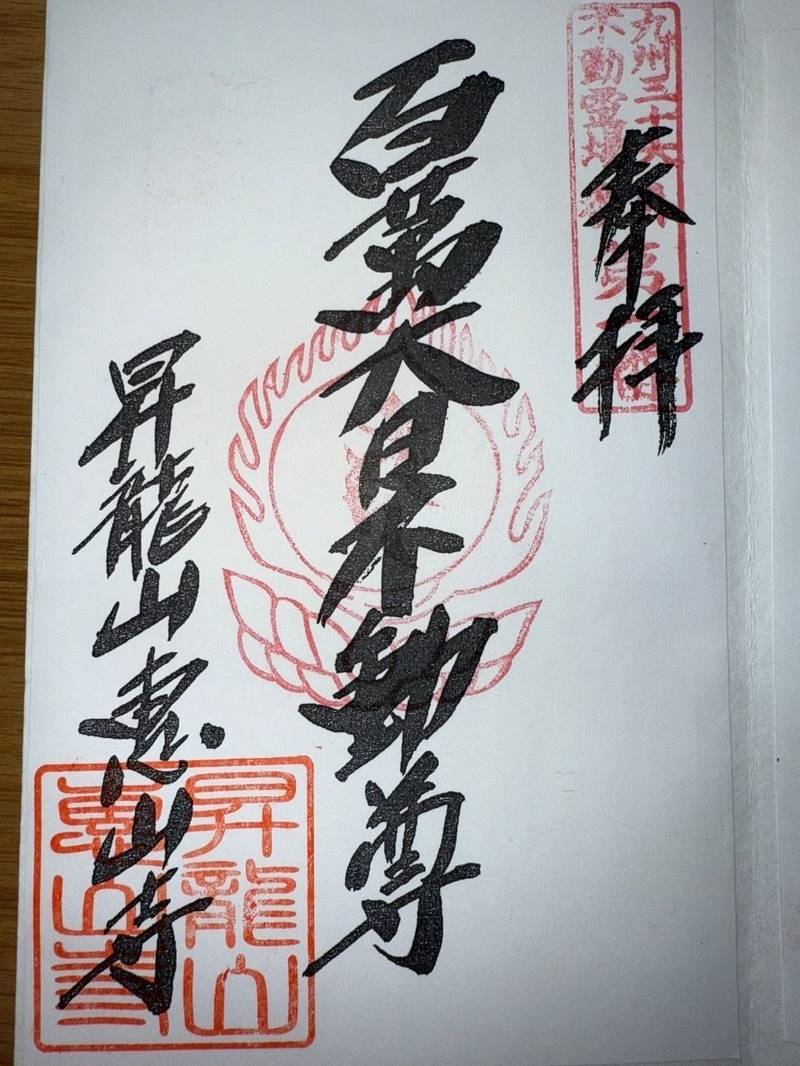 九州三十六
不動霊場
奉拝
百萬大日不動尊
昇龍山惠山寺
昇龍山
惠山寺